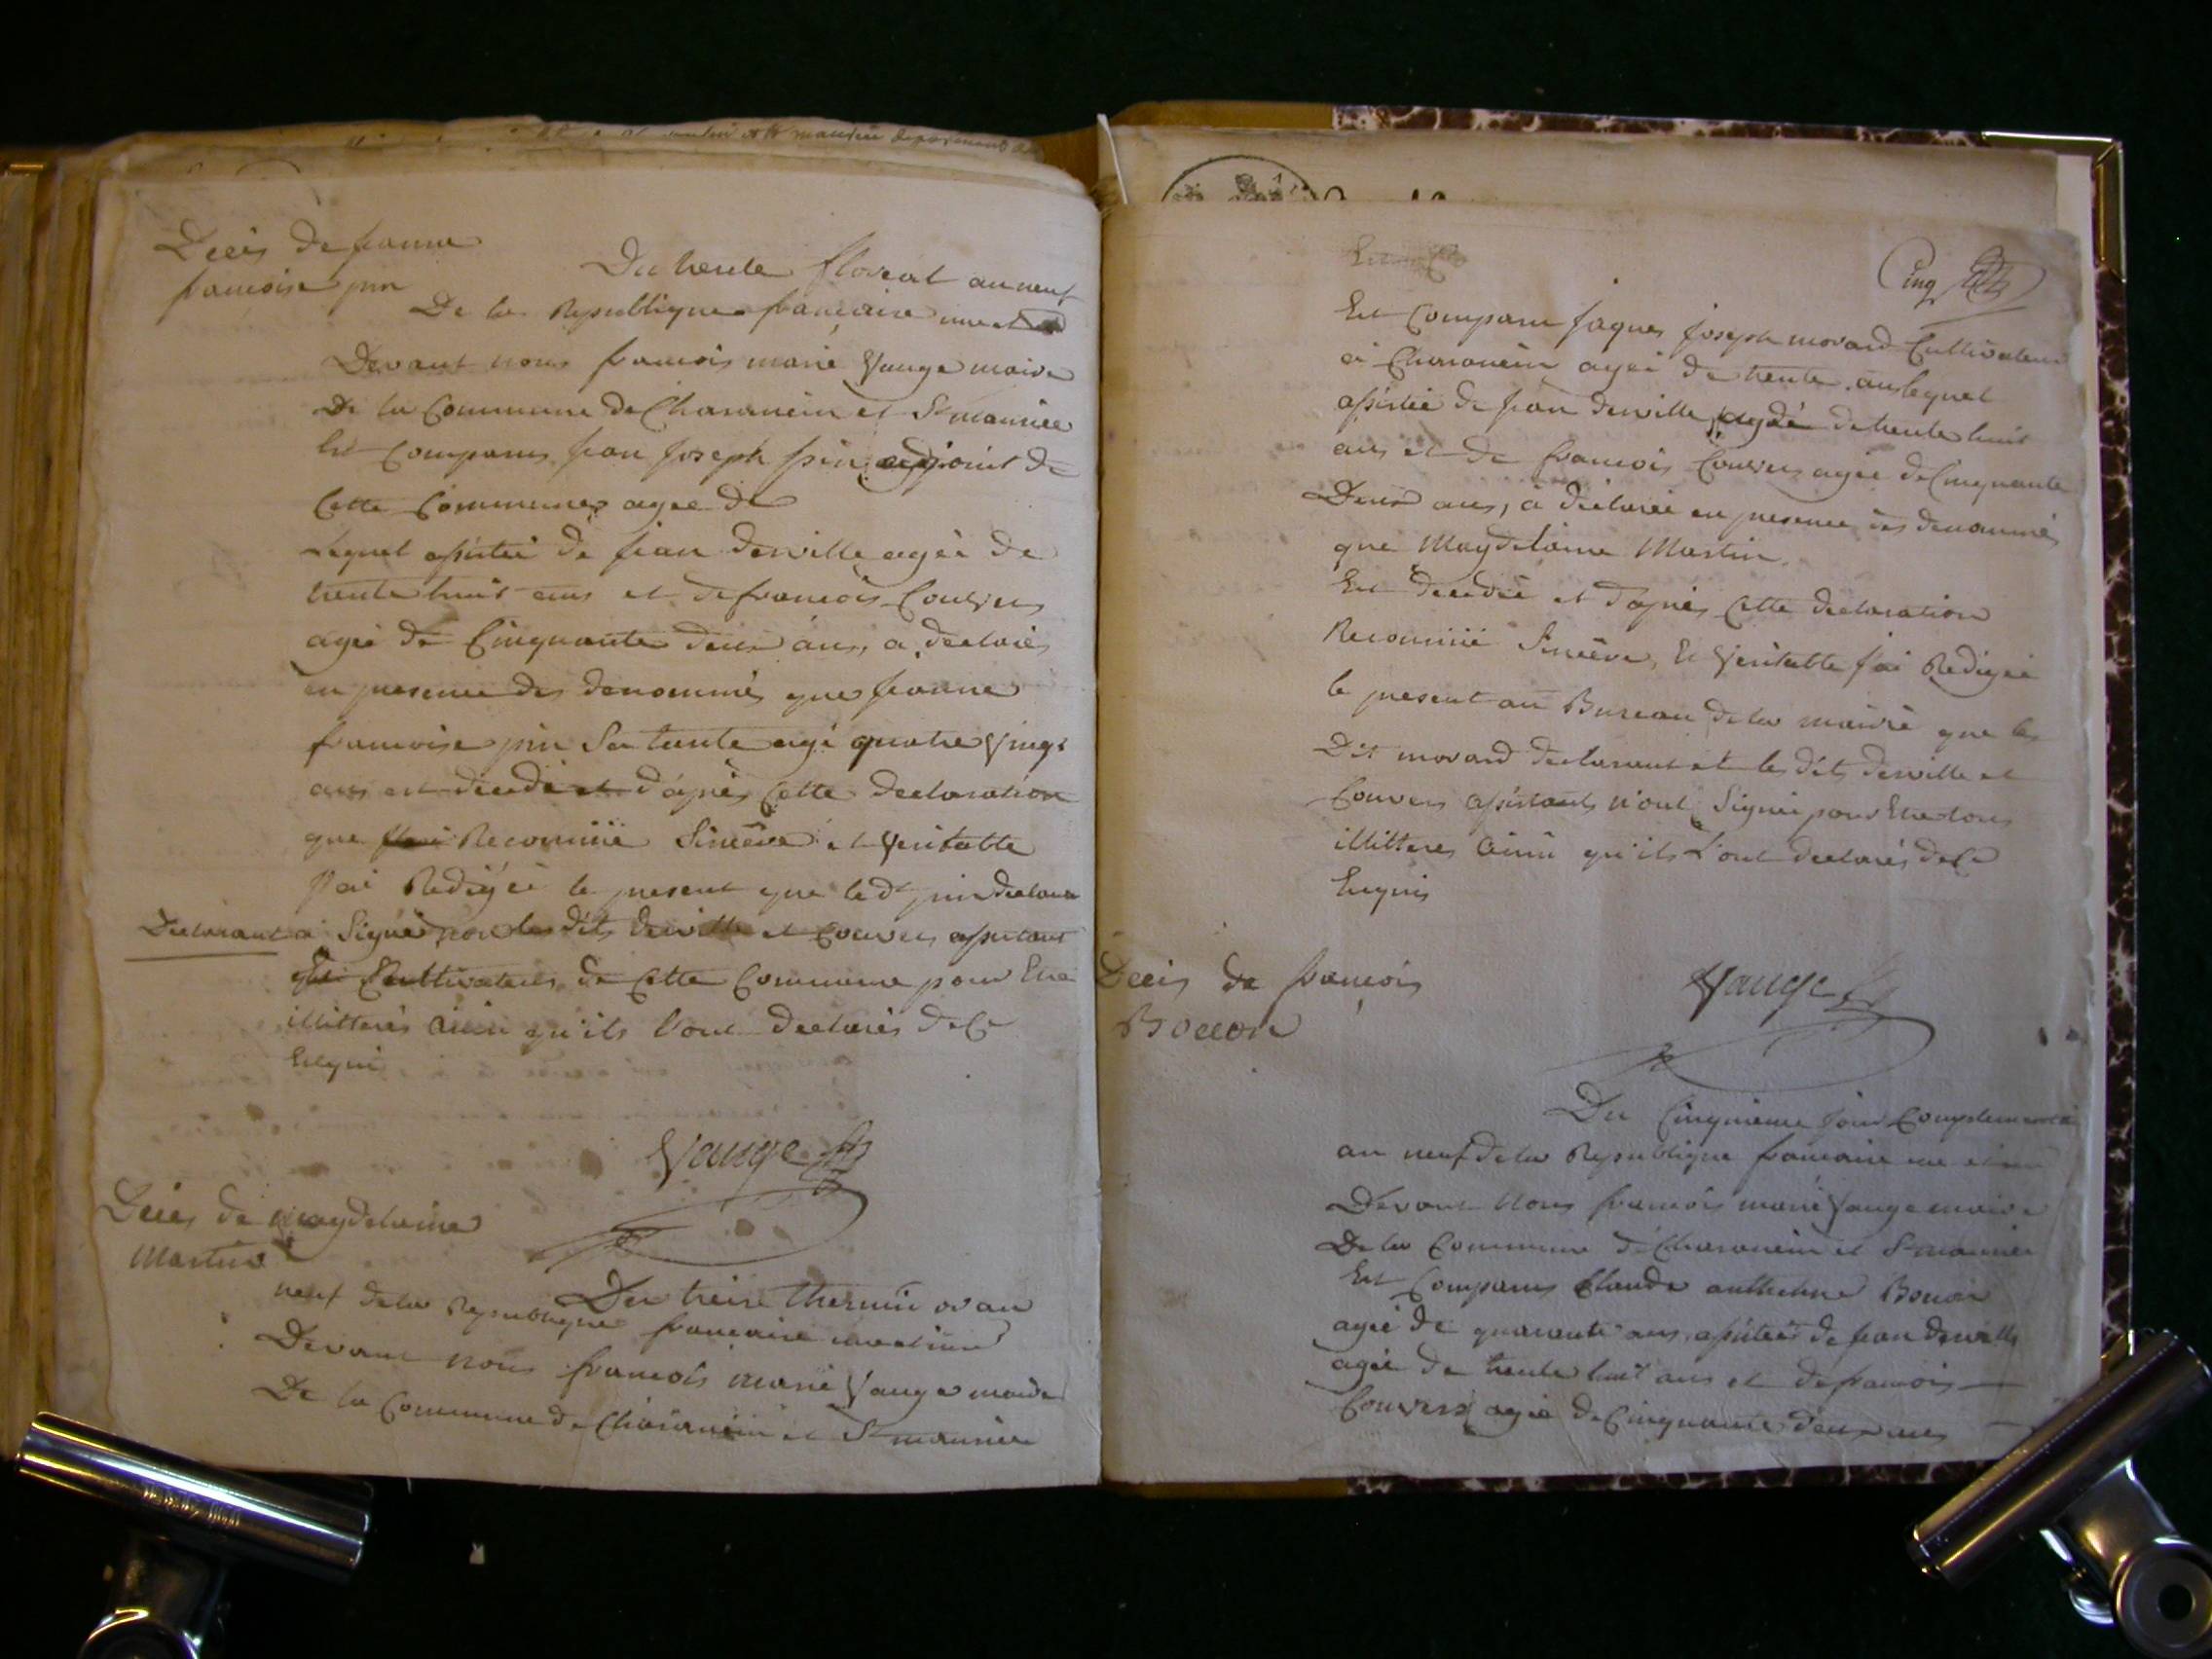 Décès de jeanne
francoise pin
Du trente floreal an neuf
De la Republique francaise une et
Devant nous francois marie Vauge maire
De la Commune de Charancin et St maurice
Est Comparus jean joseph pin adjoint de
Cette Commune agee de
Lequel assistée de jean derville agée de
trente huit ans et de francois Couvers
agée de Cinquante deux ans, a declarés
en presence des denommés que jeanne
francoise pin sa tante agé quatre Vingt
ans est decedé et d'après Cette declaration
que Reconnue Sincère et Veritable
j'ai Redigée le present que le dt pin declara
Declarant a Signé non les dits derville et Couvers assistant
Cultivateurs de Cette Commune pour Etre
illitterés ainsi qu'ils l'ont declarés de Ce
Enquis
Vauge
Décès de magdelaine
Martin
Du treize thermidor an
neuf de la Republique francaise
Devant nous francois marie Vauge maire
De la Commune de Charancin et St maurice
Cinq
Est Comparu jaques joseph morard Cultivateur
à Charancin agée de trente ans lequel
assistée de jean derville agée de trente huit
ans et de francois Couvers agée de Cinquante
Deux ans, à déclarée en presence des denommés
que Magdelaine Martin
Est decedée et d'après Cette declaration
Reconnue Sincère, Et Veritable j'ai Redigée
le present au Bureau de la mairie que le
Dit morard declarant et les dits derville et
Couvers assistants n'ont Signée pour Etre tous
illitteres ainsi qu'ils L'ont declarés de Ce
Enquis
Vauge
Décès de francois
Bocon
Du Cinquieme jour Complementaire
an neuf de la Republique francaise une et
Devant Nous francois marie Vauge maire
De la Commune de Charancin et St maurice
Est Comparus Claude anthelme
agée de quarante ans assistée de jean derville
agée de trente huit ans et de francois
Couvers agée de Cinquante deux ans